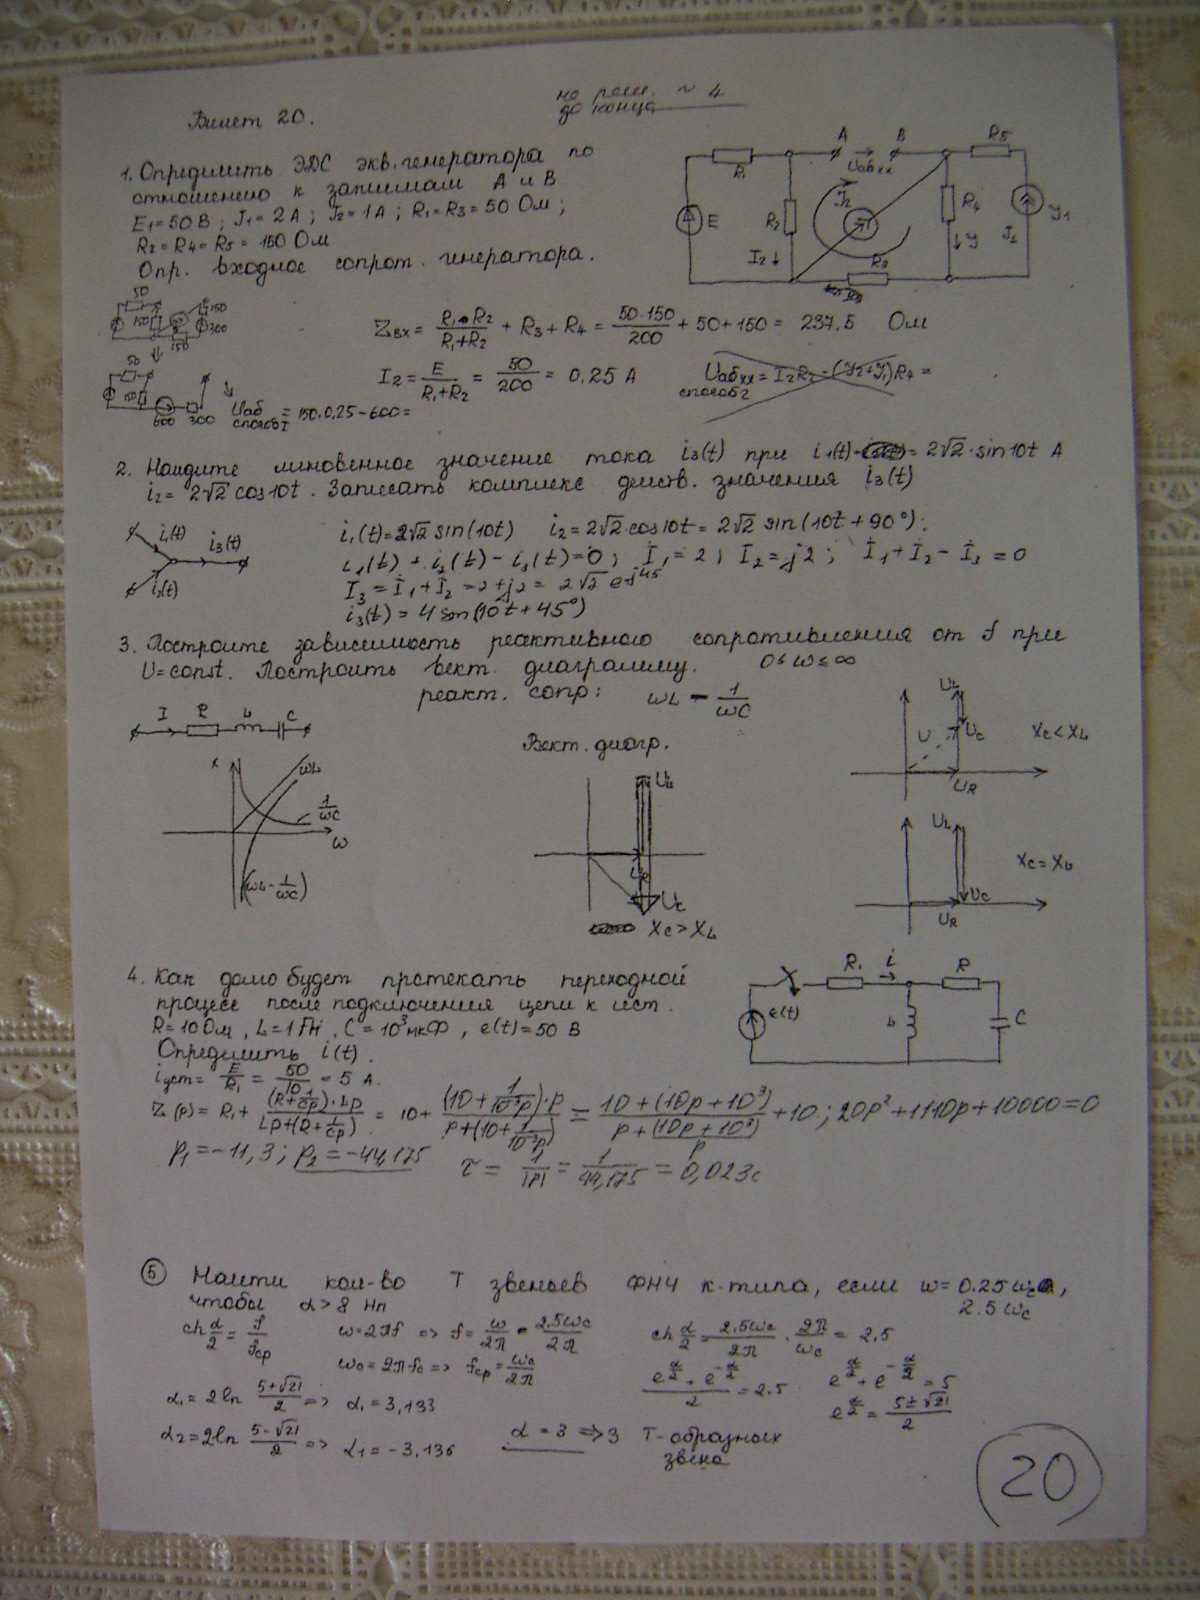 Билет 20.
не реш. ~ 4
до конца
1. Определить ЭДС экв. генератора по
отношению к зажимам А и В
E₁=50 В ; J₁= 2 A ; J₂= 1 A ; R₁= R₃= 50 Ом ;
R₂= R₄= R₅ = 150 Ом
Опр. входное сопрот. генератора.
A B R₅
R₁ Uабхх
E R₂ J₂ R₄ J₁
I₂↓ R₃
50 150 150 300 150
Zвх = R₁•R₂/(R₁+R₂) + R₃ + R₄ = 50·150/200 + 50+150 = 237,5 Ом
I₂ = E/(R₁+R₂) = 50/200 = 0,25 А
Uабхх = I₂R₂ - (J₂+J₁)R₄ =
способ 2
50 150 600 300
Uаб = 150·0,25 - 600 =
способ 1
2. Найдите мгновенное значение тока i₃(t) при i₁(t) = 2√2 · sin10t А
i₂= 2√2 cos10t . Записать комплекс действ. значения i₃(t)
i₁(t) i₃(t) i₂(t)
i₁(t)=2√2 sin(10t) i₂=2√2·cos10t= 2√2 sin(10t+90°).
i₁(t) + i₂(t) - i₃(t)=0 ; İ₁=2 ; İ₂=j2 ; İ₁+İ₂-İ₃=0
İ₃ = İ₁+İ₂ =2+j2= 2√2 e^j45
i₃(t) = 4 sin(10t+45°)
3. Постройте зависимость реактивного сопротивления от f при
U=const. Построить вект. диаграмму. 0≤ω≤∞
реакт. сопр: ωL - 1/ωC
I R L C
Вект. диагр.
x ωL 1/ωC ω (ωL-1/ωC)
UL UR UC
Xc > XL
UL U UC UR Xc < XL
UL UC UR Xc = XL
4. Как долго будет протекать переходной
процесс после подключения цепи к ист.
R=10 Ом , L=1 Гн , C=10³мкФ , e(t)=50 В
Определить i(t).
R₁ i R e(t) L C
iуст= E/R₁ = 50/10 = 5 А.
Z(p) = R₁+ (R+1/Cp)·Lp/(Lp+(R+1/Cp)) = 10+ (10+1/10⁻³p)·p/(p+(10+1/10⁻³p)) = 10+(10p+10³)/(p+(10p+10³)/p) +10 ; 20p²+1110p+10000=0
p₁=-11,3 ; p₂=-44,175 τ = 1/|p| = 1/44,175 = 0,023с
5 Найти кол-во Т звеньев ФНЧ к-типа, если ω= 0.25ωc,
чтобы α>8 Нп 2.5ωc
ch α/2 = f/fср ω=2πf => f= ω/2π = 2,5ωc/2π ch α/2 = 2.5ωc/2π · 2π/ωc = 2.5
ωc=2πfc => fср= ωc/2π (e^α/2 + e^-α/2)/2 = 2.5 e^α/2 + e^-α/2 = 5
α₁= 2ln (5+√21)/2 => α₁= 3,133 e^α/2 = (5±√21)/2
α₂=2ln (5-√21)/2 => α₁= -3,136 α = 3 => 3 Т-образных
звена
20